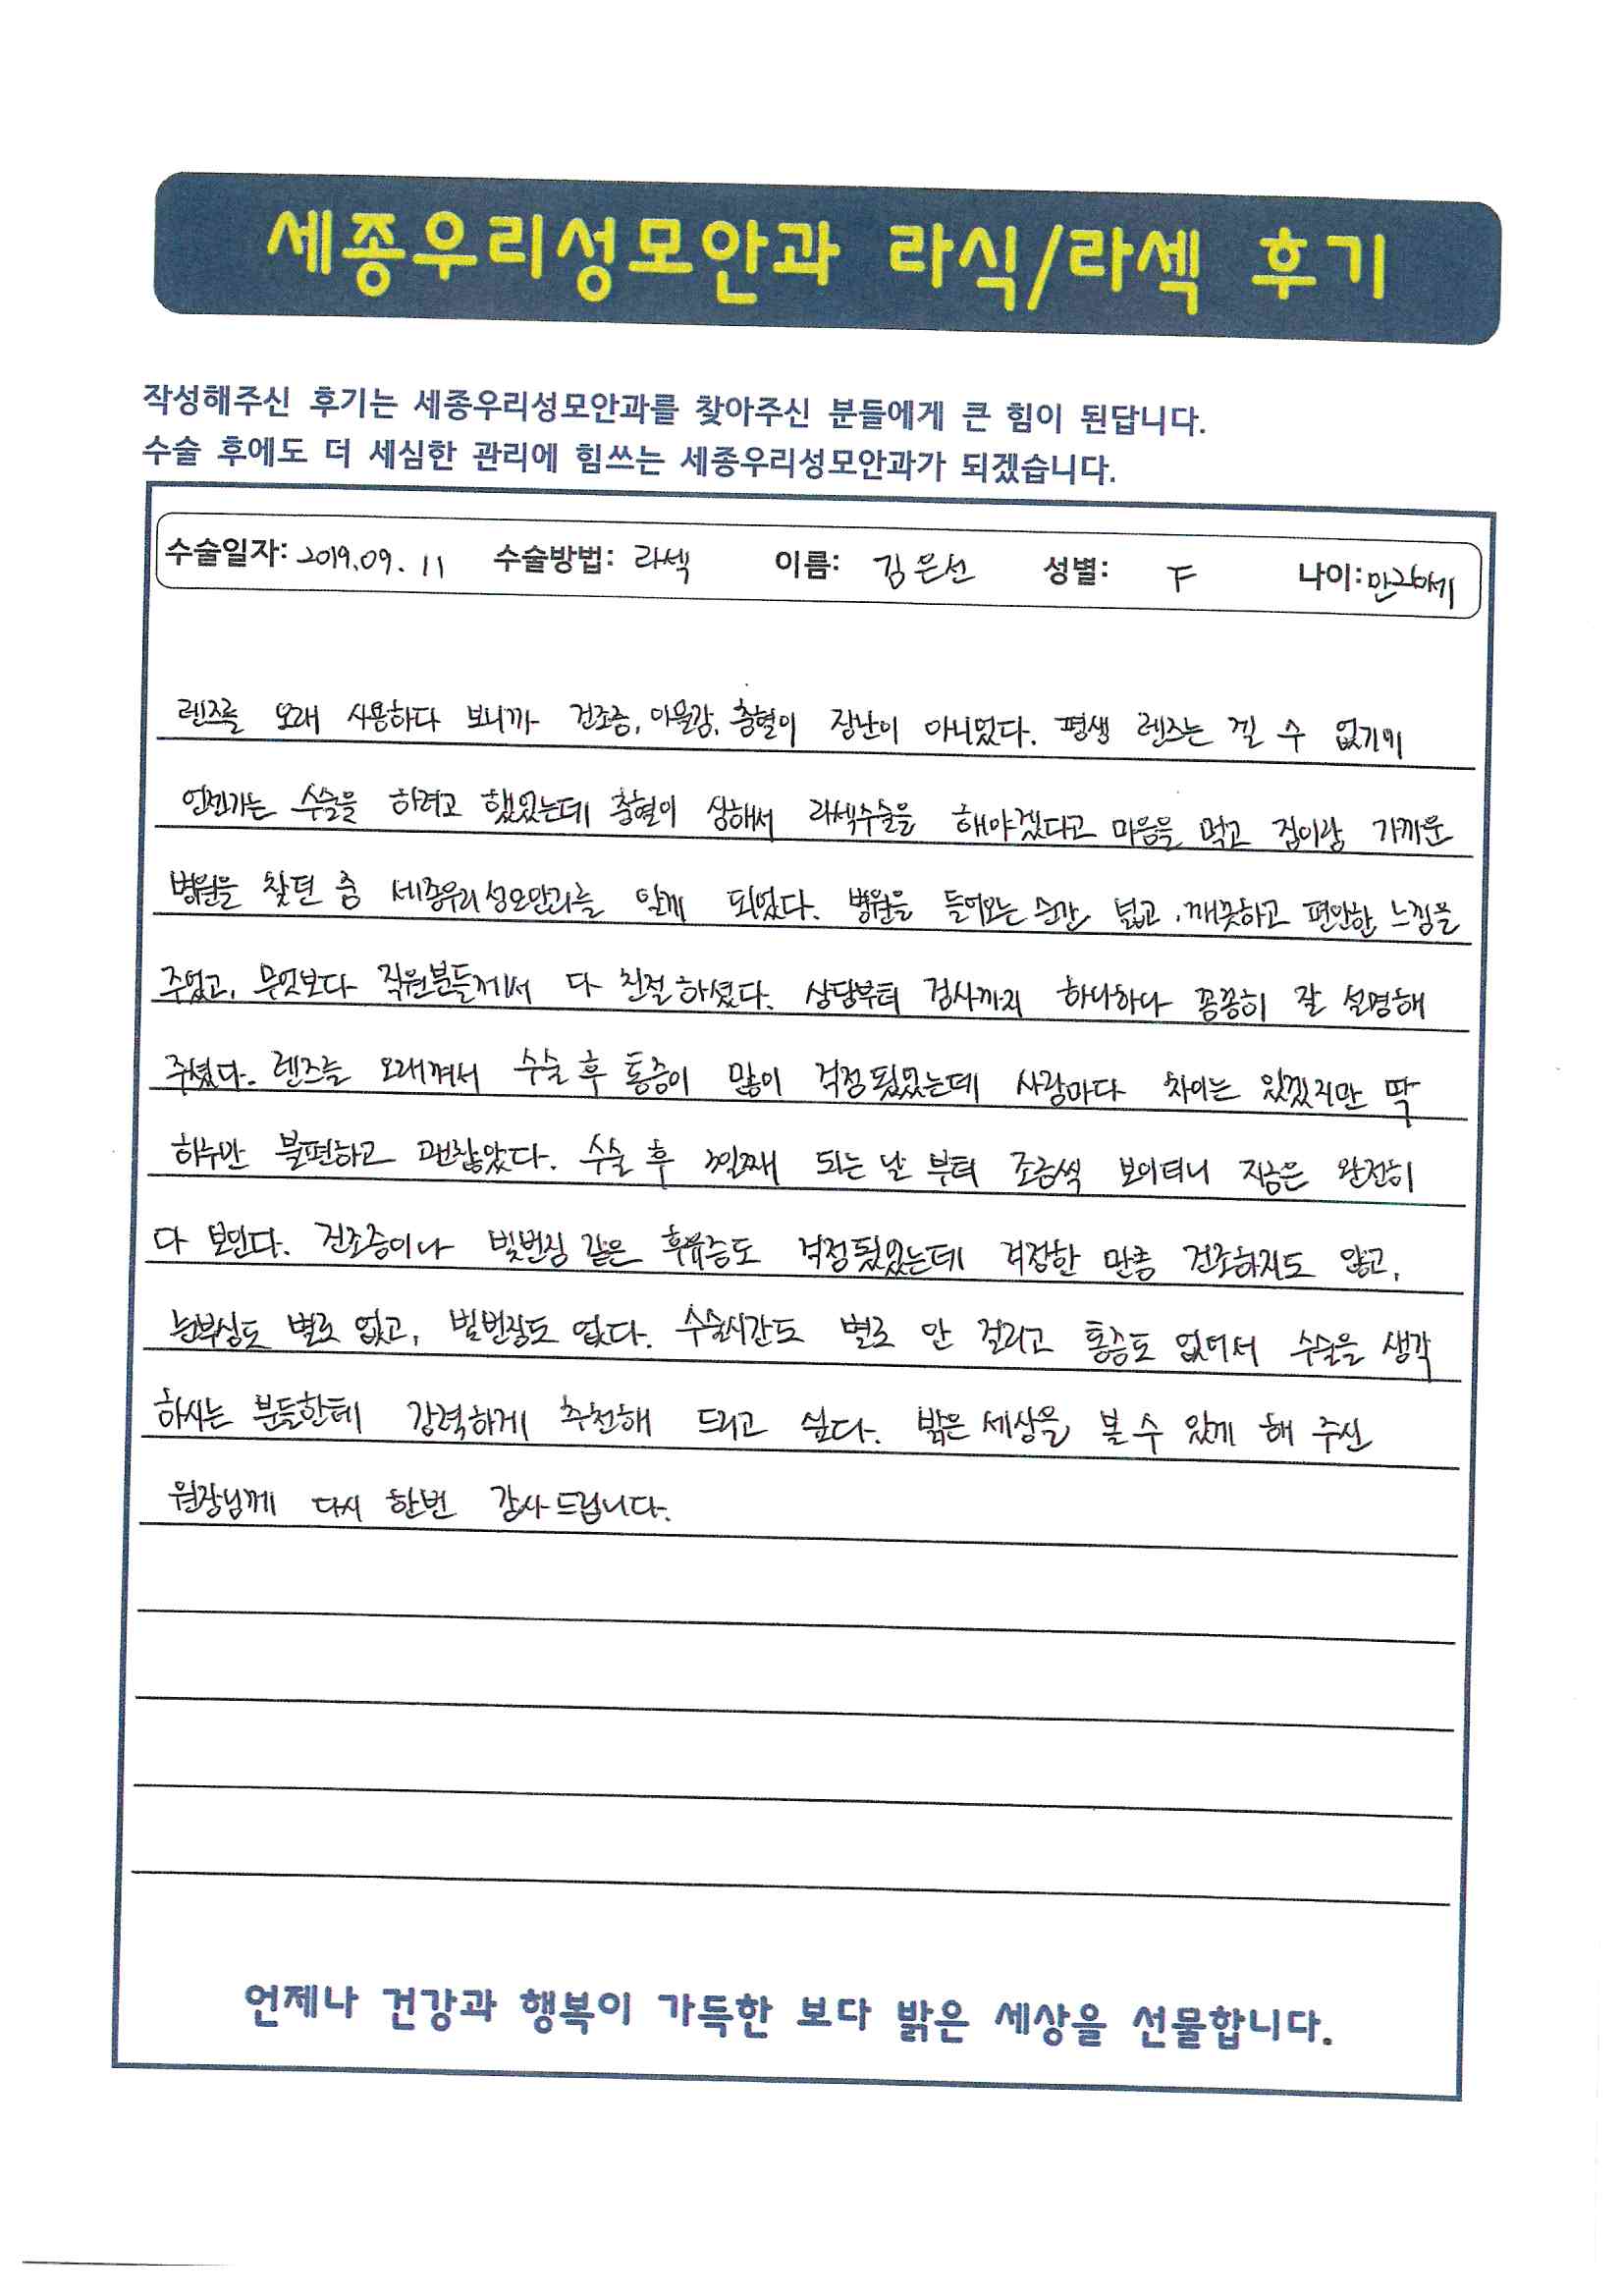 세종우리성모안과 라식/라섹 후기
작성해주신 후기는 세종우리성모안과를 찾아주신 분들에게 큰 힘이 된답니다.
수술 후에도 더 세심한 관리에 힘쓰는 세종우리성모안과가 되겠습니다.
수술일자: 2019.09.11 수술방법: 라섹 이름: 김은선 성별: F 나이:
렌즈를 오래 사용하다 보니까 건조증, 이물감, 충혈이 장난이 아니었다. 평생 렌즈는 낄 수 없기에
언젠가는 수술을 하려고 했었는데 충혈이 심해서 라섹수술을 해야겠다고 마음을 먹고 집이랑 가까운
병원을 찾던 중 세종우리성모안과를 알게 되었다. 병원을 들어오는 순간 넓고, 깨끗하고 편안한 느낌을
주었고, 무엇보다 직원분들께서 다 친절하셨다. 상담부터 검사까지 하나하나 꼼꼼히 잘 설명해
주셨다. 렌즈를 오래껴서 수술 후 통증이 많이 걱정됬었는데 사람마다 차이는 있겠지만 딱
하루만 불편하고 괜찮았다. 수술 후 3일째 되는 날 부터 조금씩 보이더니 지금은 완전히
다 보인다. 건조증이나 빛번짐 같은 후유증도 걱정됬었는데 걱정한 만큼 건조하지도 않고,
눈부심도 별로 없고, 빛번짐도 없다. 수술시간도 별로 안 걸리고 통증도 없어서 수술을 생각
하시는 분들한테 강력하게 추천해 드리고 싶다. 밝은 세상을 볼 수 있게 해 주신
원장님께 다시 한번 감사드립니다.
언제나 건강과 행복이 가득한 보다 밝은 세상을 선물합니다.